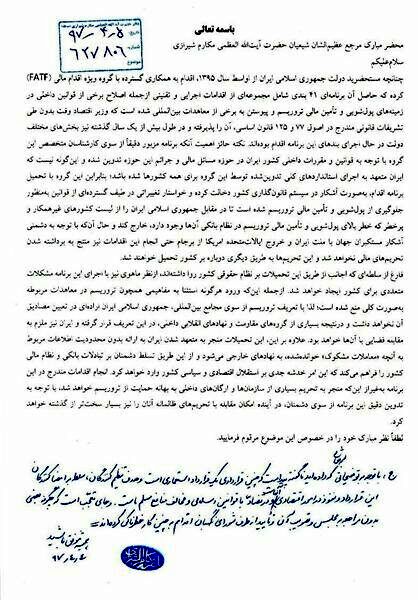 باسمه تعالی
۹۷-۴-۵
۶۲۷۸۰۶
محضر مبارک مرجع عظیم‌الشان شیعیان حضرت آیت‌الله العظمی مکارم شیرازی
سلام‌علیکم
چنانچه مستحضرید دولت جمهوری اسلامی ایران از اواسط سال ۱۳۹۵، اقدام به همکاری گسترده با گروه ویژه اقدام مالی (FATF)
کرده که حاصل آن برنامه‌ای ۴۱ بندی شامل مجموعه‌ای از اقدامات اجرایی و تقنینی ازجمله اصلاح برخی از قوانین داخلی در
زمینه‌های پول‌شویی و تأمین مالی تروریسم و پیوستن به برخی از معاهدات بین‌المللی شده است که وزیر اقتصاد وقت بدون طی
تشریفات قانونی مندرج در اصول ۷۷ و ۱۲۵ قانون اساسی، آن را پذیرفته و در طول بیش از یک سال گذشته نیز بخش‌های مختلف
دولت در حال اجرای بندهای این برنامه اقدام بوده‌اند. نکته حائز اهمیت آنکه برنامه مزبور دقیقاً از سوی کارشناسان متخصص این
گروه با توجه به قوانین و مقررات داخلی کشور ایران در حوزه مسائل مالی و جرائم این حوزه تدوین شده و این‌گونه نیست که
ایران متعهد به اجرای استانداردهای کلی تدوین‌شده توسط این گروه برای همه کشورها شده باشد؛ بنابراین این گروه با تحمیل
برنامه اقدام، به‌صورت آشکار در سیستم قانون‌گذاری کشور دخالت کرده و خواستار تغییراتی در طیف گسترده‌ای از قوانین به‌منظور
جلوگیری از پول‌شویی و تأمین مالی تروریسم شده است تا در مقابل جمهوری اسلامی ایران را از لیست کشورهای غیرهمکار و
پرخطر که خطر بالای پول‌شویی و تأمین مالی تروریسم در نظام بانکی آن‌ها وجود دارد، خارج کند و حال آن‌که با توجه به دشمنی
آشکار مستکبران جهان با ملت ایران و خروج ایالات‌متحده امریکا از برجام حتی انجام این اقدامات نیز منتج به برداشته شدن
تحریم‌های مالی نخواهد شد و این تحریم‌ها به طریق دیگری دوباره بر کشور تحمیل خواهند شد.
فارغ از سلطه‌ای که اجانب از طریق این تحمیلات بر نظام حقوقی کشور روا داشته‌اند، ازنظر ماهوی نیز با اجرای این برنامه مشکلات
متعددی برای کشور ایجاد خواهد شد. ازجمله این‌که ورود هرگونه استثنا به مفاهیمی همچون تروریسم در معاهدات مربوطه
به‌صورت کلی منع شده است؛ لذا با تعریف تروریسم از سوی مجامع بین‌المللی، جمهوری اسلامی ایران اراده‌ای در تعیین مصادیق
آن نخواهد داشت و درنتیجه بسیاری از گروه‌های مقاومت و نهادهای انقلابی داخلی، در این تعریف قرار گرفته و ایران نیز ملزم به
مقابله قضایی با آن‌ها خواهد بود. علاوه بر این، این تحمیلات منجر به متعهد شدن ایران به ارائه بدون محدودیت اطلاعات مربوط
به آنچه «معاملات مشکوک» خوانده‌شده، به نهادهای خارجی می‌شود و از این طریق تسلط دشمنان بر تبادلات بانکی و نظام مالی
کشور را فراهم می‌کند که این امر خدشه جدی بر استقلال اقتصادی و سیاسی کشور وارد خواهد کرد. انجام اقدامات مندرج در این
برنامه به‌غیراز این‌که منجر به تحریم بسیاری از سازمان‌ها و ارگان‌های داخلی به بهانه حمایت از تروریسم خواهد شد، با توجه به
تدوین دقیق این برنامه از سوی دشمنان، در آینده امکان مقابله با تحریم‌های ظالمانه آنان را نیز بسیار سخت‌تر از گذشته خواهد
کرد.
لطفاً نظر مبارک خود را در خصوص این موضوع مرقوم فرمایید.
با توجه به توضیحاتی که داده‌اید ناگفته پیداست که چنین قراردادی یک قرارداد استعماری است و هدف سلطه
این قرارداد و نفوذ در امور اقتصادی با قوانین اسلامی و مخالف منافع مسلم است. و جای تعجب است که
بدون مراجعه به مجلس و تصویب آن و تأیید از طرف شورای نگهبان اقدام به چنین کار خطرناکی کرده‌اند
همیشه موفق باشید
۹۷/۴/۶